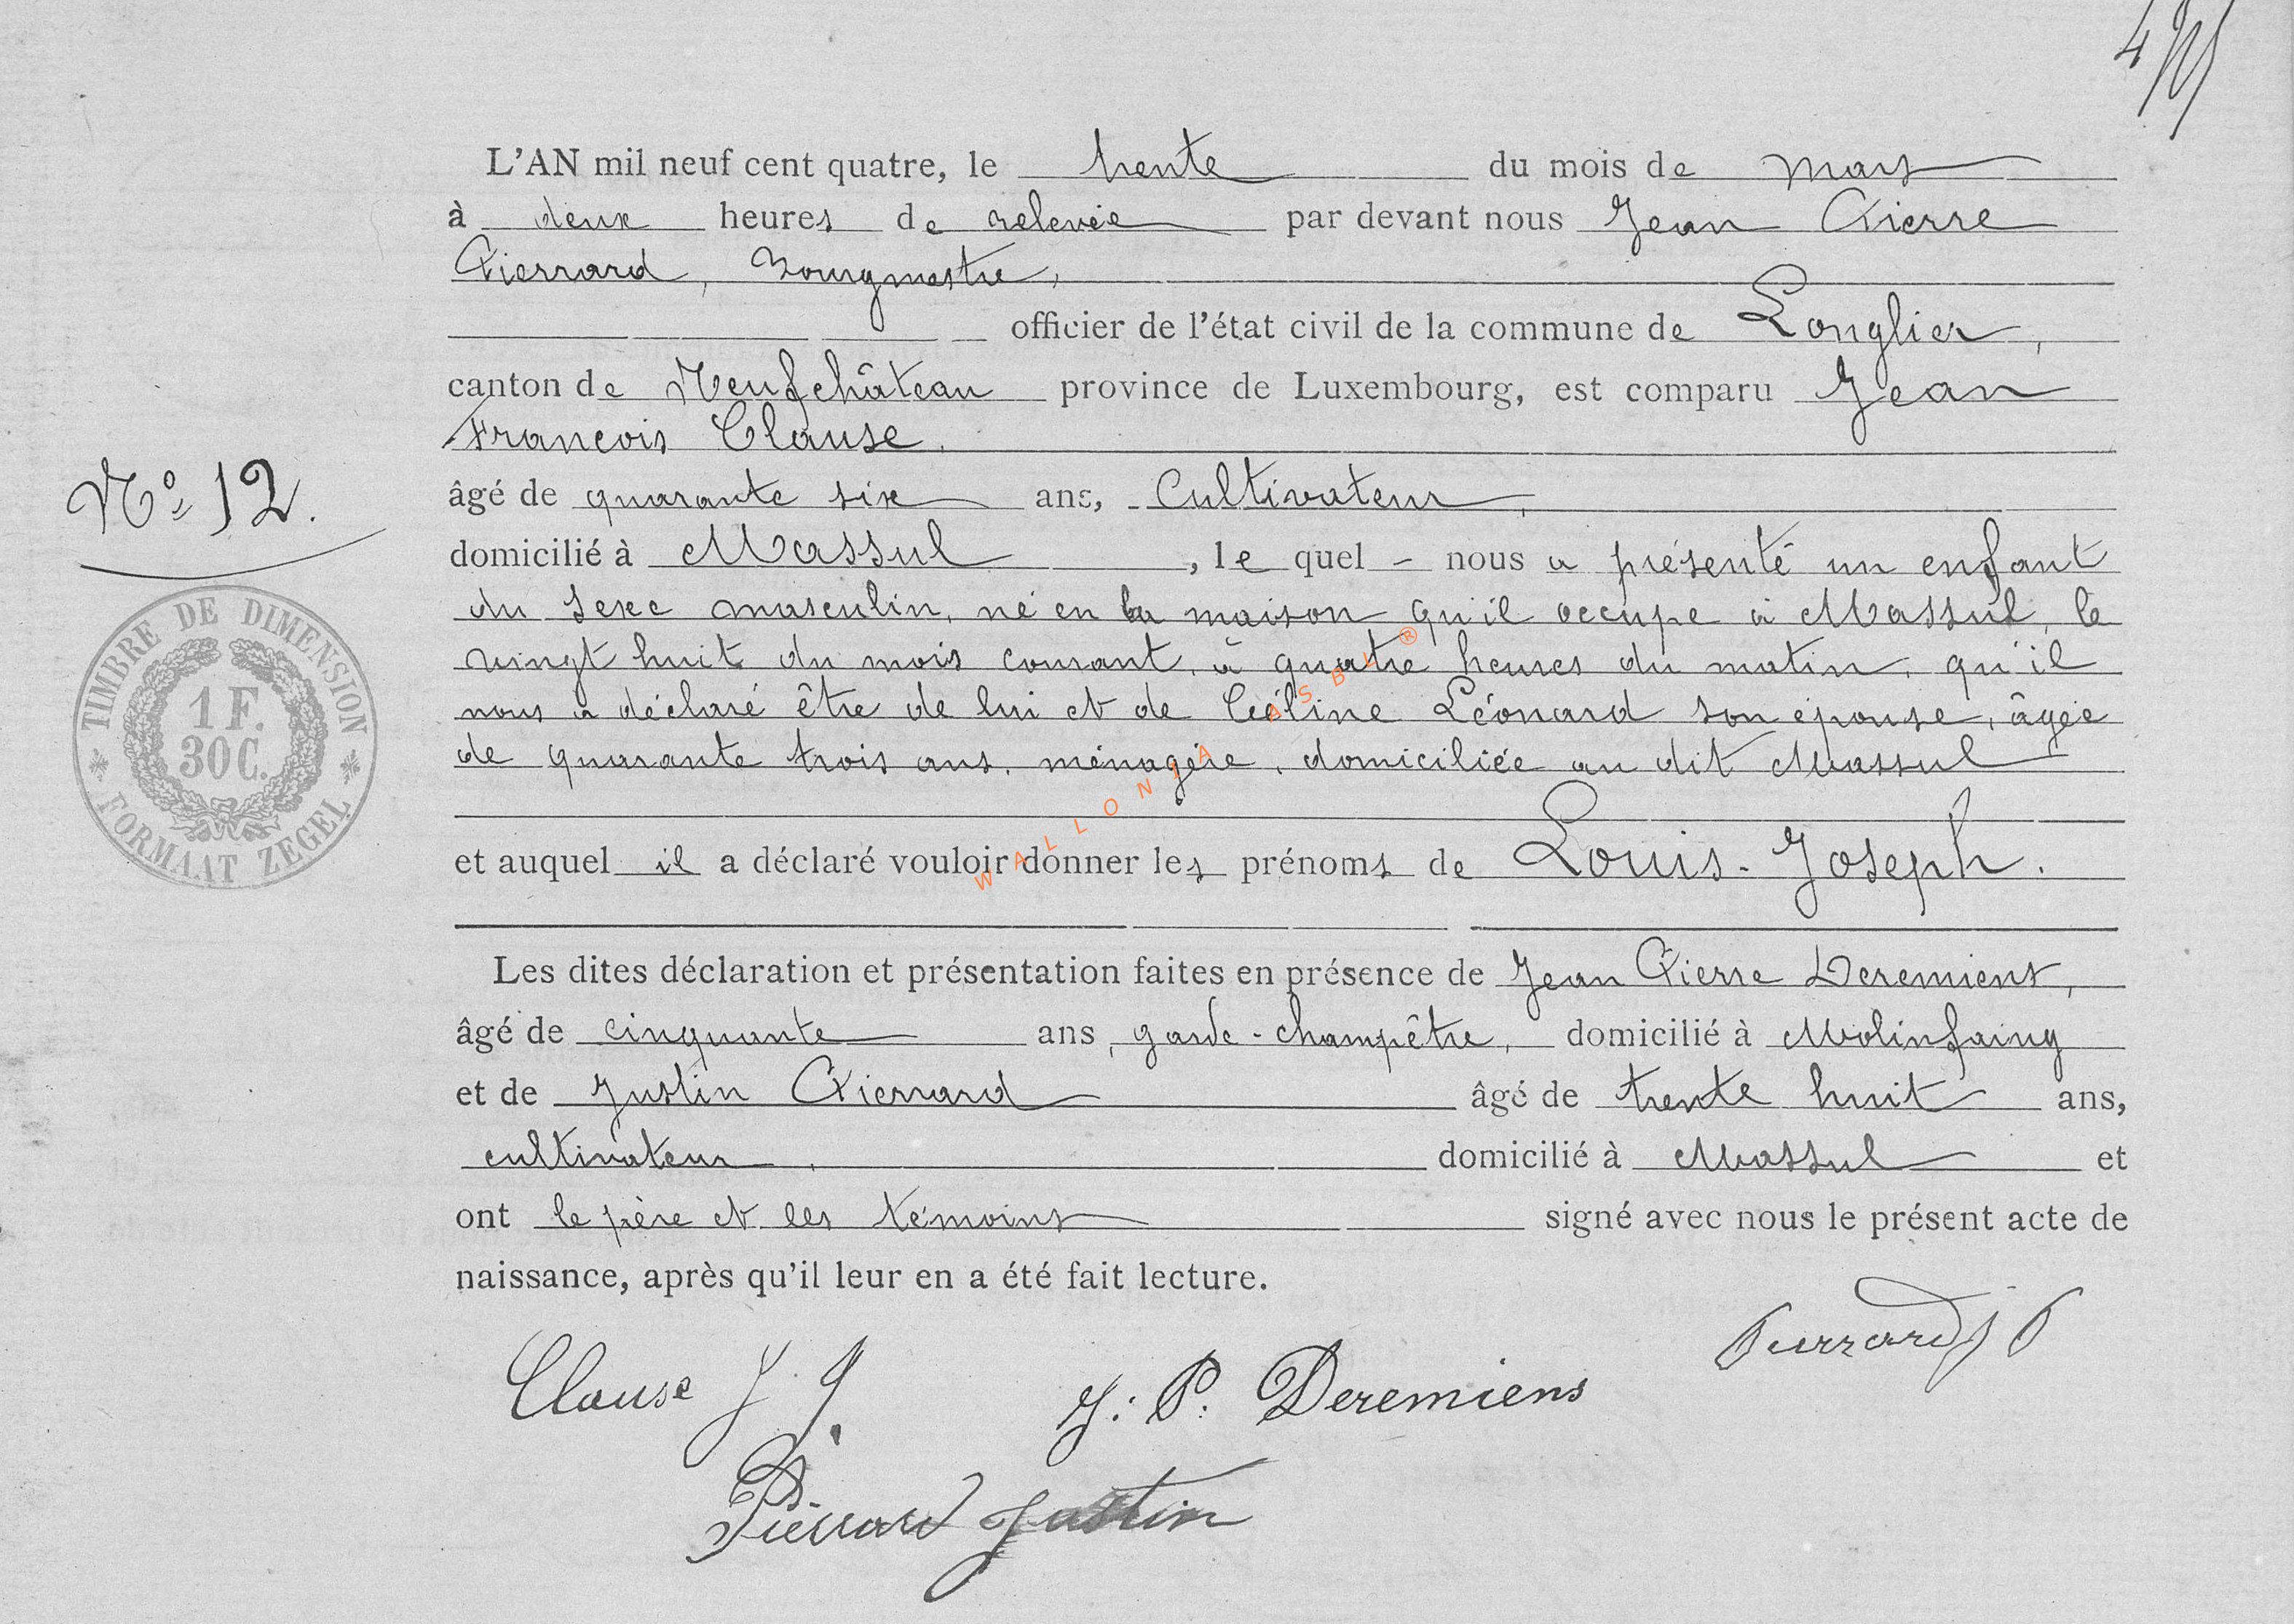 L'AN mil neuf cent quatre, le trente du mois de mars
à deux heures de relevée par devant nous Jean Pierre
Pierrard, Bourgmestre,
officier de l'état civil de la commune de Longlier,
canton de Neufchâteau province de Luxembourg, est comparu Jean
François Clause,
N° 12.
âgé de quarante six ans, Cultivateur,
domicilié à Massul, le quel - nous a présenté un enfant
du sexe masculin, né en la maison qu'il occupe à Massul, le
vingt huit du mois courant, à quatre heures du matin, qu'il
nous a déclaré être de lui et de Céline Léonard son épouse, âgée
de quarante trois ans, ménagère, domiciliée au dit Massul
TIMBRE DE DIMENSION
1 F.
30 C.
FORMAAT ZEGEL
WALLONIA ASBL ®
et auquel il a déclaré vouloir donner les prénoms de Louis-Joseph.
Les dites déclaration et présentation faites en présence de Jean Pierre Deremiens,
âgé de cinquante ans, garde-champêtre, domicilié à Molinfaing
et de Justin Pierrard âgé de trente huit ans,
cultivateur, domicilié à Massul et
ont le père et les témoins signé avec nous le présent acte de
naissance, après qu'il leur en a été fait lecture.
Pierrard J P
Clause J. J. P. Deremiens
Pierrard Justin